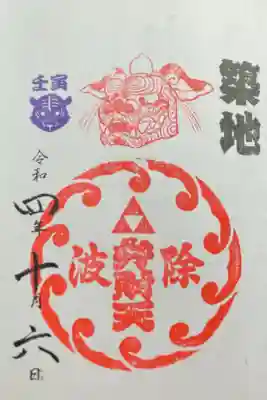 築地
壬寅
波除
財天
令和四年十月六日